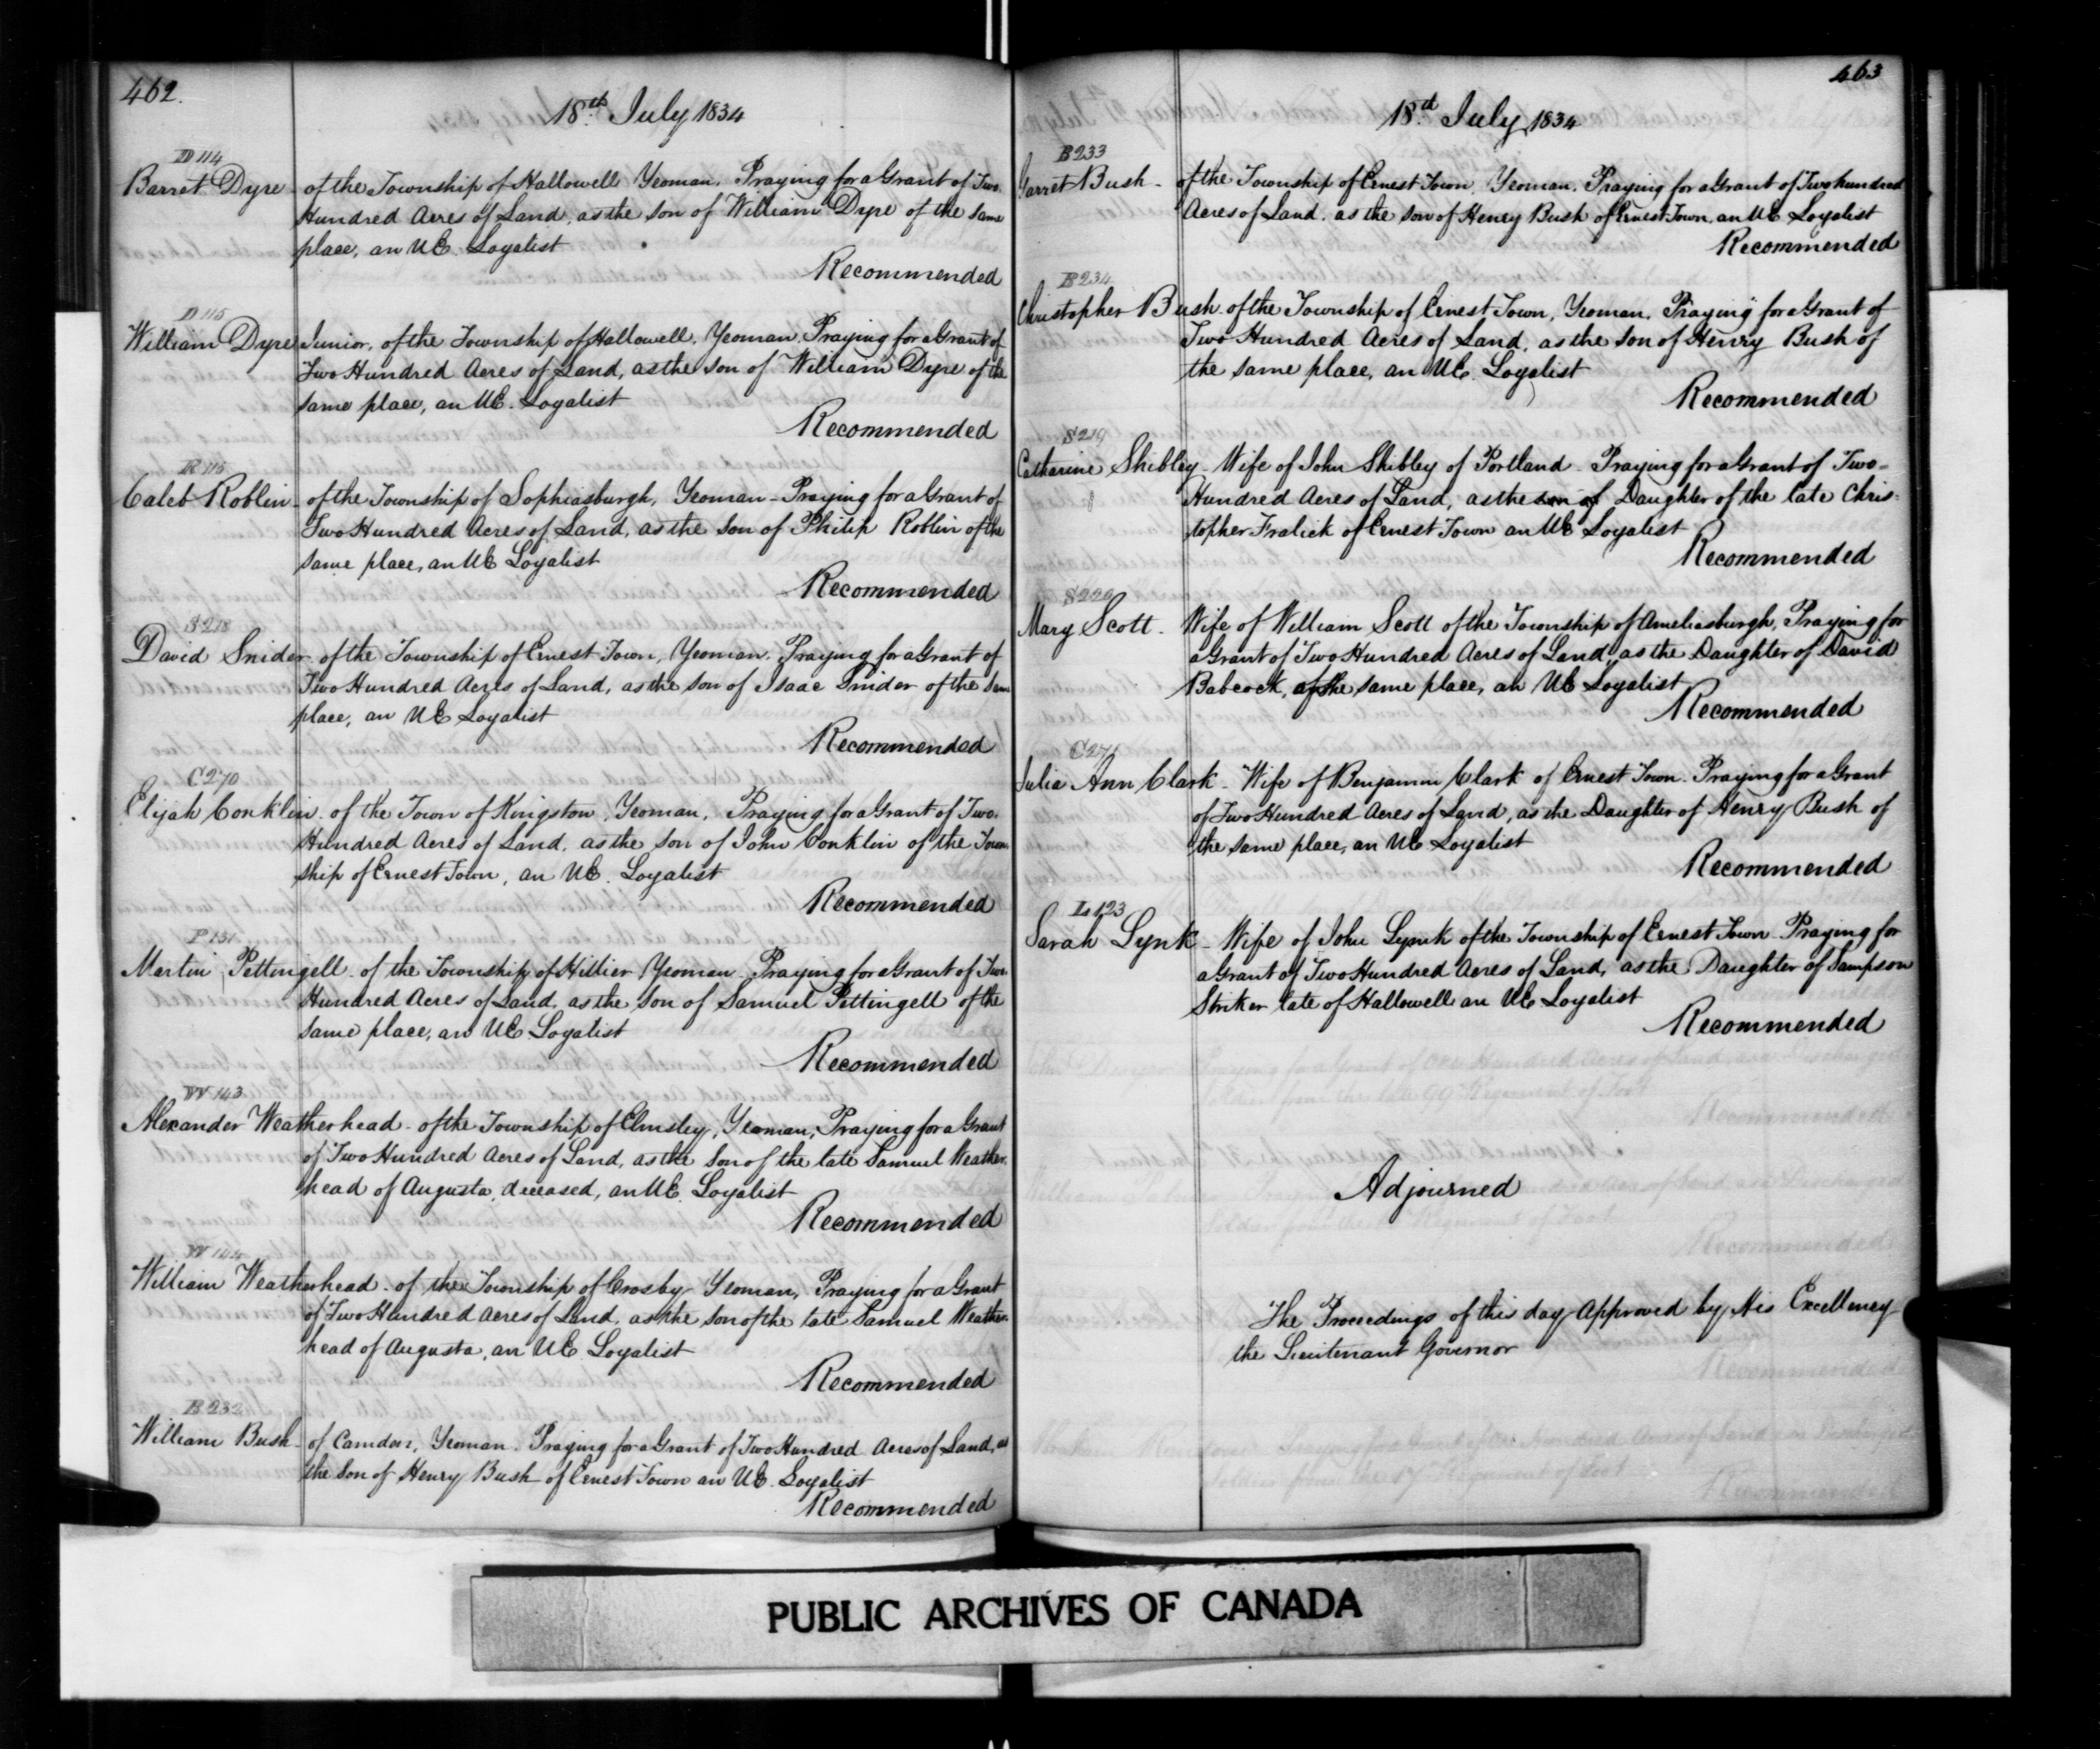 462.
18th July 1834
D 114
Barret Dyre - of the Township of Hallowell Yeoman. Praying for a Grant of Two
Hundred Acres of Land, as the son of William Dyre of the same
place, an UE. Loyalist
Recommended
D 115
William Dyre Junior, of the Township of Hallowell, Yeoman, Praying for a Grant of
Two Hundred Acres of Land, as the son of William Dyre of the
same place, an UE. Loyalist
Recommended
R 115
Caleb Roblin - of the Township of Sophiasburgh, Yeoman - Praying for a Grant of
Two Hundred Acres of Land, as the son of Philip Roblin of the
same place, an UE Loyalist
Recommended
S 218
David Snider - of the Township of Ernest Town, Yeoman. Praying for a Grant of
Two Hundred Acres of Land, as the son of Isaac Snider of the same
place, an UE Loyalist
Recommended
C 270
Elijah Conklin - of the Town of Kingston, Yeoman, Praying for a Grant of Two
Hundred Acres of Land, as the son of John Conklin of the Town-
ship of Ernest Town, an UE. Loyalist
Recommended
P 131
Martin Pettingell - of the Township of Hillier Yeoman - Praying for a Grant of Two
Hundred Acres of Land, as the son of Samuel Pettingell of the
same place, an UE Loyalist
Recommended
W 143
Alexander Weatherhead - of the Township of Elmsley, Yeoman, Praying for a Grant
of Two Hundred Acres of Land, as the son of the late Samuel Weather-
head of Augusta, deceased, an UE. Loyalist
Recommended
W 144
William Weatherhead - of the Township of Crosby Yeoman, Praying for a Grant
of Two Hundred Acres of Land, as the son of the late Samuel Weather-
head of Augusta, an UE Loyalist
Recommended
B 232
William Bush - of Camden, Yeoman. Praying for a Grant of Two Hundred Acres of Land, as
the son of Henry Bush of Ernest Town an UE. Loyalist
Recommended
463
18th July 1834
B 233
Garret Bush - of the Township of Ernest Town, Yeoman. Praying for a Grant of Two hundred
Acres of Land, as the son of Henry Bush of Ernest Town, an UE Loyalist
Recommended
B 234
Christopher Bush - of the Township of Ernest Town, Yeoman. Praying for a Grant of
Two Hundred Acres of Land, as the son of Henry Bush of
the same place, an UE. Loyalist
Recommended
S 219
Catharine Shibley - Wife of John Shibley of Portland - Praying for a Grant of Two-
Hundred Acres of Land, as the son of Daughter of the late Chris-
topher Fralick of Ernest Town an UE Loyalist
Recommended
S 220
Mary Scott - Wife of William Scott of the Township of Ameliasburgh, Praying for
a Grant of Two Hundred Acres of Land, as the Daughter of David
Babcock, of the same place, an UE Loyalist
Recommended
C 271
Julia Ann Clark - Wife of Benjamin Clark of Ernest Town - Praying for a Grant
of Two Hundred Acres of Land, as the Daughter of Henry Bush of
the same place, an UE Loyalist
Recommended
L 123
Sarah Lynk - Wife of John Lynk of the Township of Ernest Town - Praying for
a Grant of Two Hundred Acres of Land, as the Daughter of Sampson
Striker late of Hallowell an UE Loyalist
Recommended
Adjourned
The Proceedings of this day Approved by His Excellency
the Lieutenant Governor
PUBLIC ARCHIVES OF CANADA